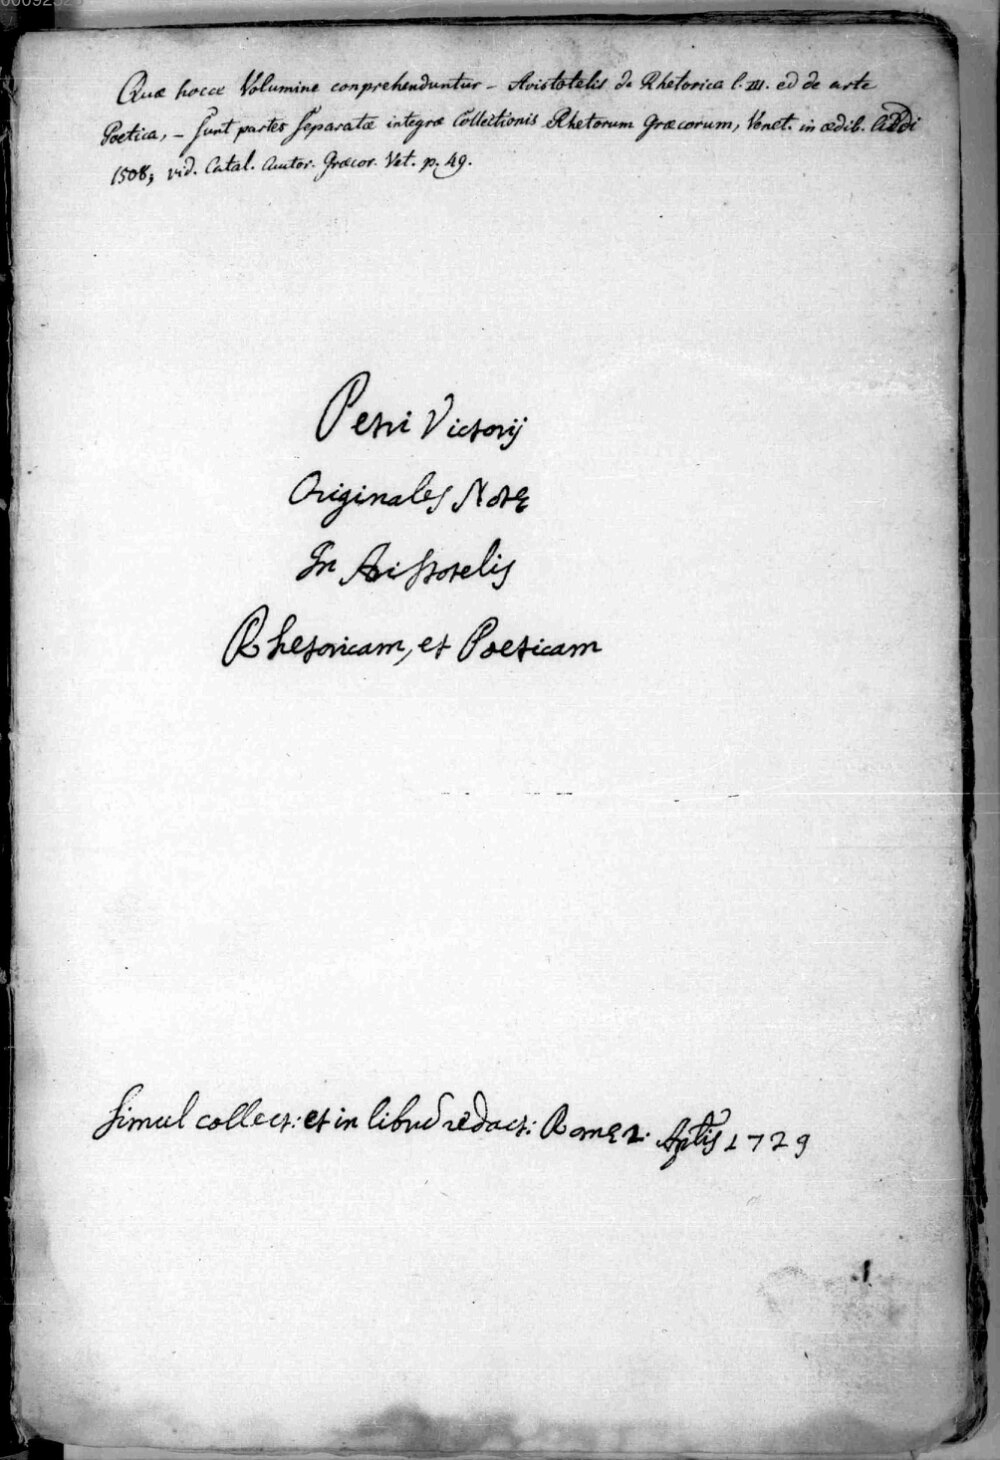 Quæ hocce Volumine conprehenduntur - Aristotelis de Rhetorica l. III. ed de arte
Poetica, - sunt partes separatæ integræ Collectionis Rhetorum Græcorum, Venet. in ædib. Aldi
1508, vid. Catal. Auctor. Græcor. Vet. p. 49.
Petri Victorij
Originales Notę
In Aristotelis
Rhetoricam, et Poeticam
Simul collect: et in librũ redact: Romę 2. Aplis 1729
1